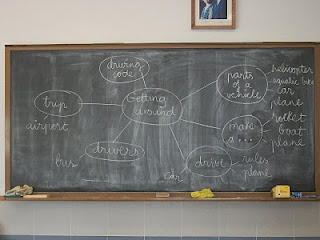 driving
code
helicopter
aquatic bike
car
plane
parts
of a
vehicle
Getting
around
trip
airport
rocket
boat
plane
make
a ...
drivers
bus
drive
rules
plane
car